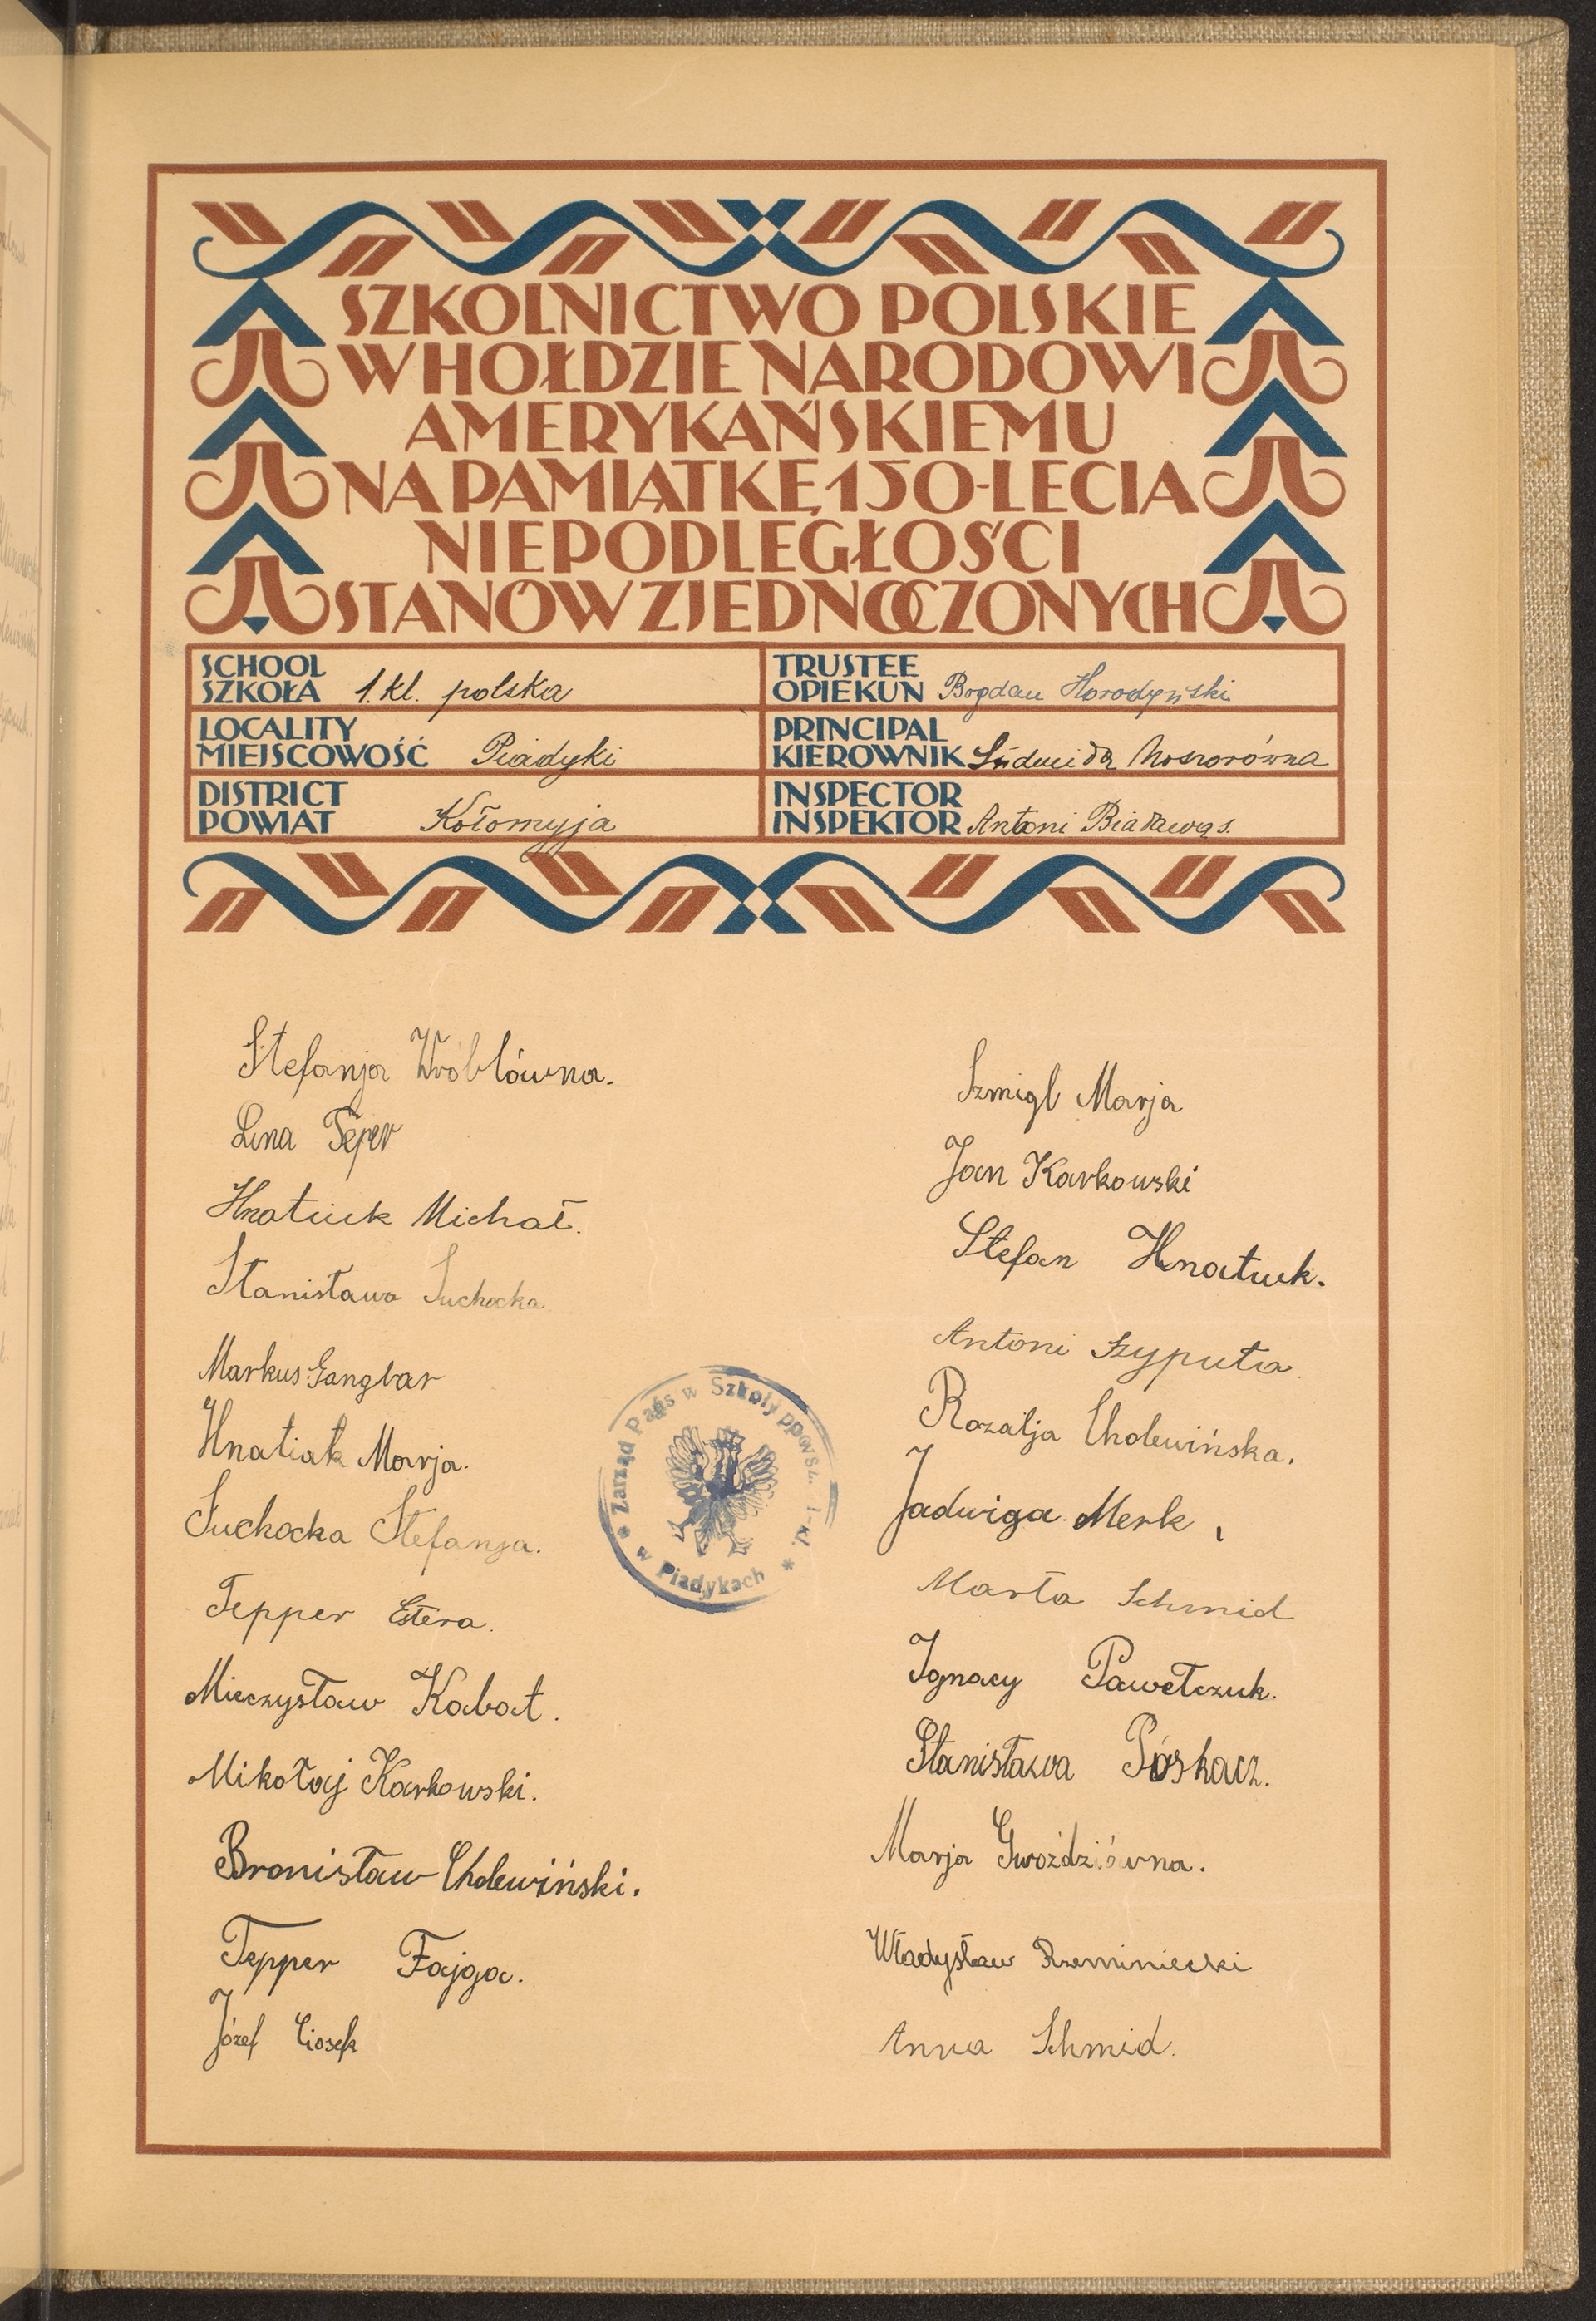 SZKOLNICTWO POLSKIE
W HOŁDZIE NARODOWI
AMERYKAŃSKIEMU
NA PAMIĄTKĘ 150-LECIA
NIEPODLEGŁOŚCI
STANÓW ZJEDNOCZONYCH
SCHOOL
SZKOŁA 1. kl. polska
LOCALITY
MIEJSCOWOŚĆ Piadyki
DISTRICT
POWIAT Kołomyja
TRUSTEE
OPIEKUN Bogdan Horodyński
PRINCIPAL
KIEROWNIK
INSPECTOR
INSPEKTOR Antoni
Stefanja Wróblówna.
Lina Teper
Hnatiuk Michał.
Stanisława Suchocka
Markus Gangbar
Hnatiak Marja.
Suchocka Stefanja.
Tepper Estera.
Mieczysław Kabat.
Mikołaj Karkowski.
Bronisław Cholewiński.
Tepper Fajga.
Józef Ciosek
Zarząd Państw Szkoły powsz. 1-kl.
w Piadykach
Szmigl Marja
Jan Karkowski
Stefan Hnatiuk.
Antoni Szyputa
Rozalja Cholewińska.
Jadwiga Merk,
Marta Schmid
Ignacy Pawełczuk.
Stanisława
Marja Gwoździówna.
Władysław Rzeminiecki
Anna Schmid.